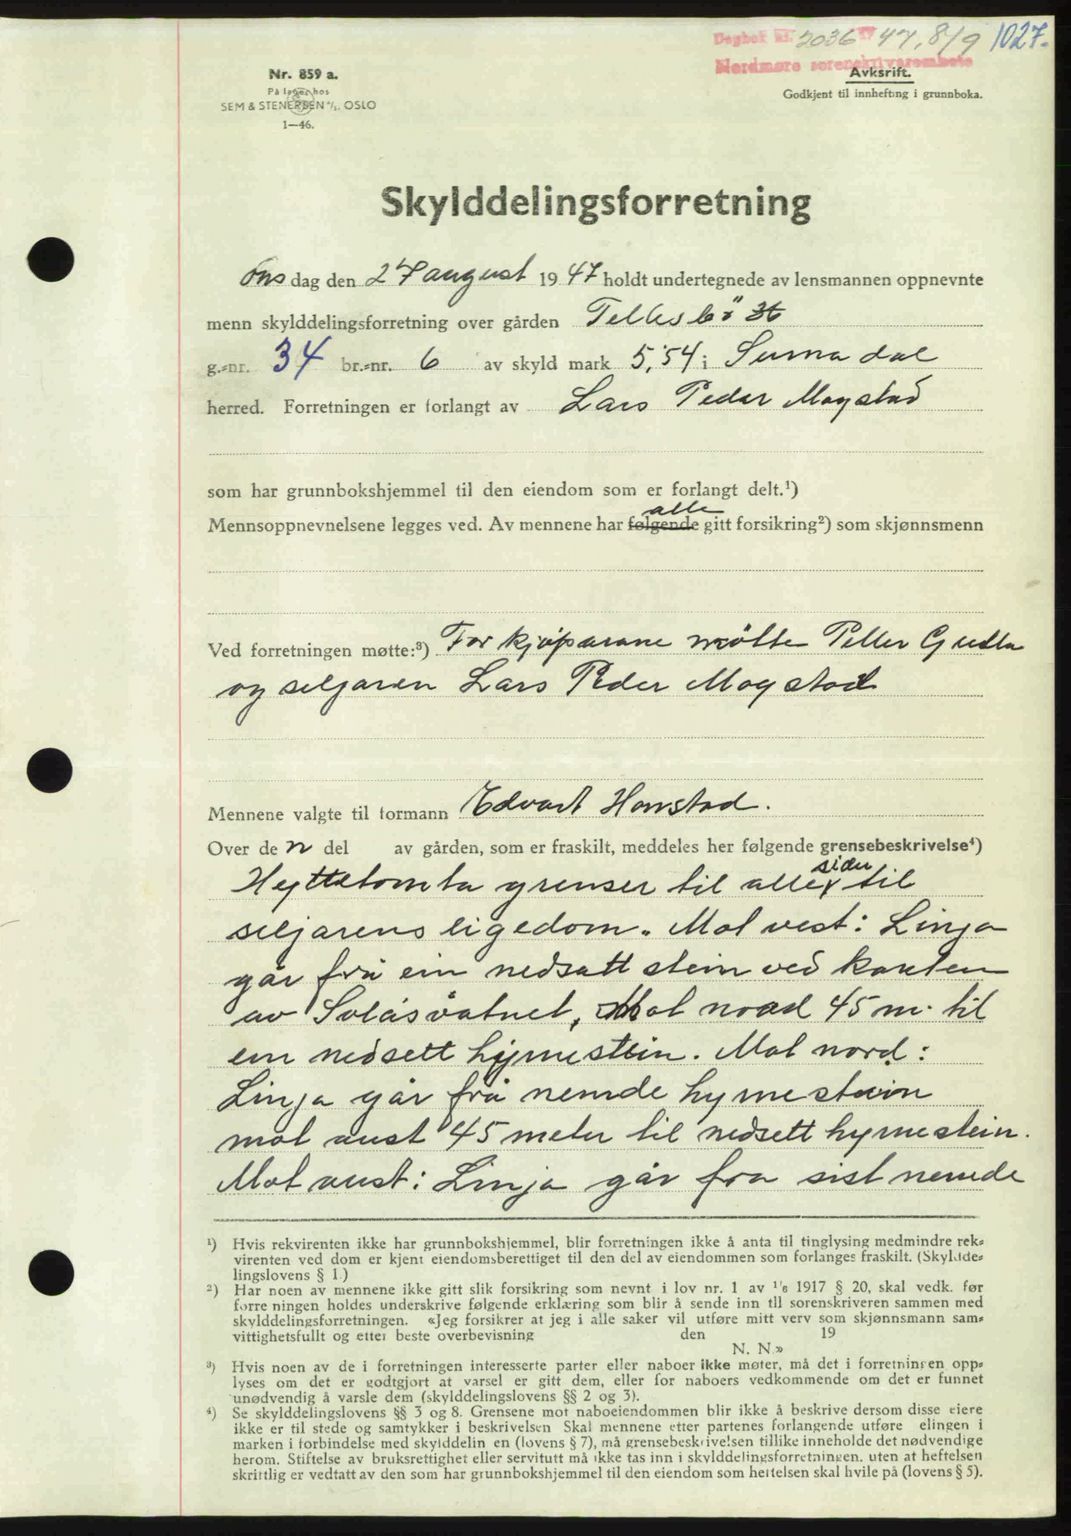 Dagbok nr. 2036 47, 8/9 1027.
Nordmøre sorenskriverembete
Nr. 859 a.
Avksrift.
På lager hos
Godkjent til innhefting i grunnboka.
SEM & STENERSEN A/S. OSLO
1—46.
Skylddelingsforretning
Ons dag den 27 august 19 47 holdt undertegnede av lensmannen oppnevnte
menn skylddelingsforretning over gården Tellesbö
g.=nr. 34 br.=nr. 6 av skyld mark 5,54 i Surnadal
herred. Forretningen er forlangt av Lars Peder Mogstad
som har grunnbokshjemmel til den eiendom som er forlangt delt.¹)
alle
Mennsoppnevnelsene legges ved. Av mennene har følgende gitt forsikring²) som skjønnsmenn
Ved forretningen møtte:³) For kjøparane møtte Petter
og seljaren Lars Peder Mogstad
Mennene valgte til formann Edvart Honstad.
Over de n del av gården, som er fraskilt, meddeles her følgende grensebeskrivelse⁴)
sider
Hyttetomta grenser til alle til
seljarens eigedom. Mot vest: Linja
går frå ein nedsatt stein ved kanten
av Solåsvatnet, mot nord 45 m. til
ein nedsett hjørnestein. Mot nord:
Linja går frå nemde hjørnestein
mot aust 45 meter til nedsett hjørnestein.
Mot aust: Linja går fra sist nemde
¹) Hvis rekvirenten ikke har grunnbokshjemmel, blir forretningen ikke å anta til tinglysing medmindre rek=
virenten ved dom er kjent eiendomsberettiget til den del av eiendommen som forlanges fraskilt. (Skyldde=
lingslovens § 1.)
²) Har noen av mennene ikke gitt slik forsikring som nevnt i lov nr. 1 av 1/6 1917 § 20, skal vedk. før
forretningen holdes underskrive følgende erklæring som blir å sende inn til sorenskriveren sammen med
skylddelingsforretningen. «Jeg forsikrer at jeg i alle saker vil utføre mitt verv som skjønnsmann sam=
vittighetsfullt og etter beste overbevisning den 19
N. N.»
³) Hvis noen av de i forretningen interesserte parter eller naboer ikke møter, må det i forretningen opp=
lyses om det er godtgjort at varsel er gitt dem, eller for naboers vedkommende om det er funnet
unødvendig å varsle dem (skylddelingslovens §§ 2 og 3).
⁴) Se skylddelingslovens §§ 3 og 8. Grensene mot naboeiendommen blir ikke å beskrive dersom disse eiere
ikke er til stede og samtykker i beskrivelsen Skal mennene etter partenes forlangende utføre delingen i
marken i forbindelse med skylddelingen (lovens § 7), må grensebeskrivelsen tillike inneholde det nødvendige
herom. Stiftelse av bruksrettighet eller servitutt må ikke tas inn i skylddelingsforretningen. uten at heftelsen
skriftlig er vedtatt av den som har grunnbokshjemmel til den eiendom som heftelsen skal hvile på (lovens § 5).